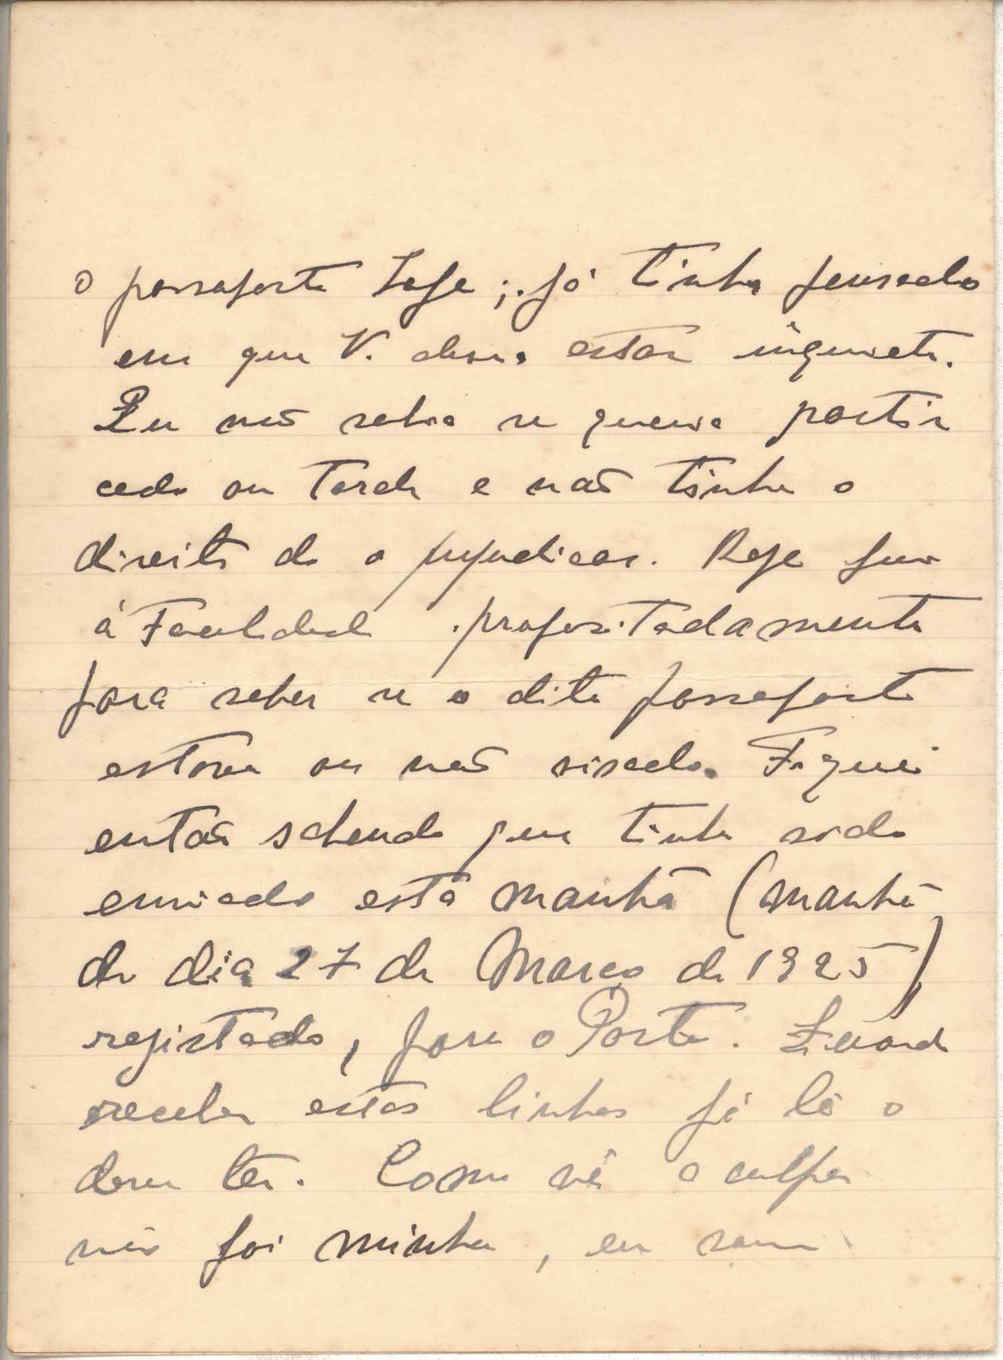 o passaporte hoje; já tinha pensado
em que V. devia estar inquieto.
Eu não sabia se queria partir
cedo ou tarde e não tinha o
direito de o prejudicar. Hoje fui
á Faculdade propositadamente
para saber se o dito passaporte
estava ou não visado. Fiquei
então sabendo que tinha sido
enviado esta manhã (manhã
do dia 27 de Março de 1925)
registado, para o Porto. Quando
receber estas linhas já lá o
deve ter. Como vê a culpa
não foi minha, eu